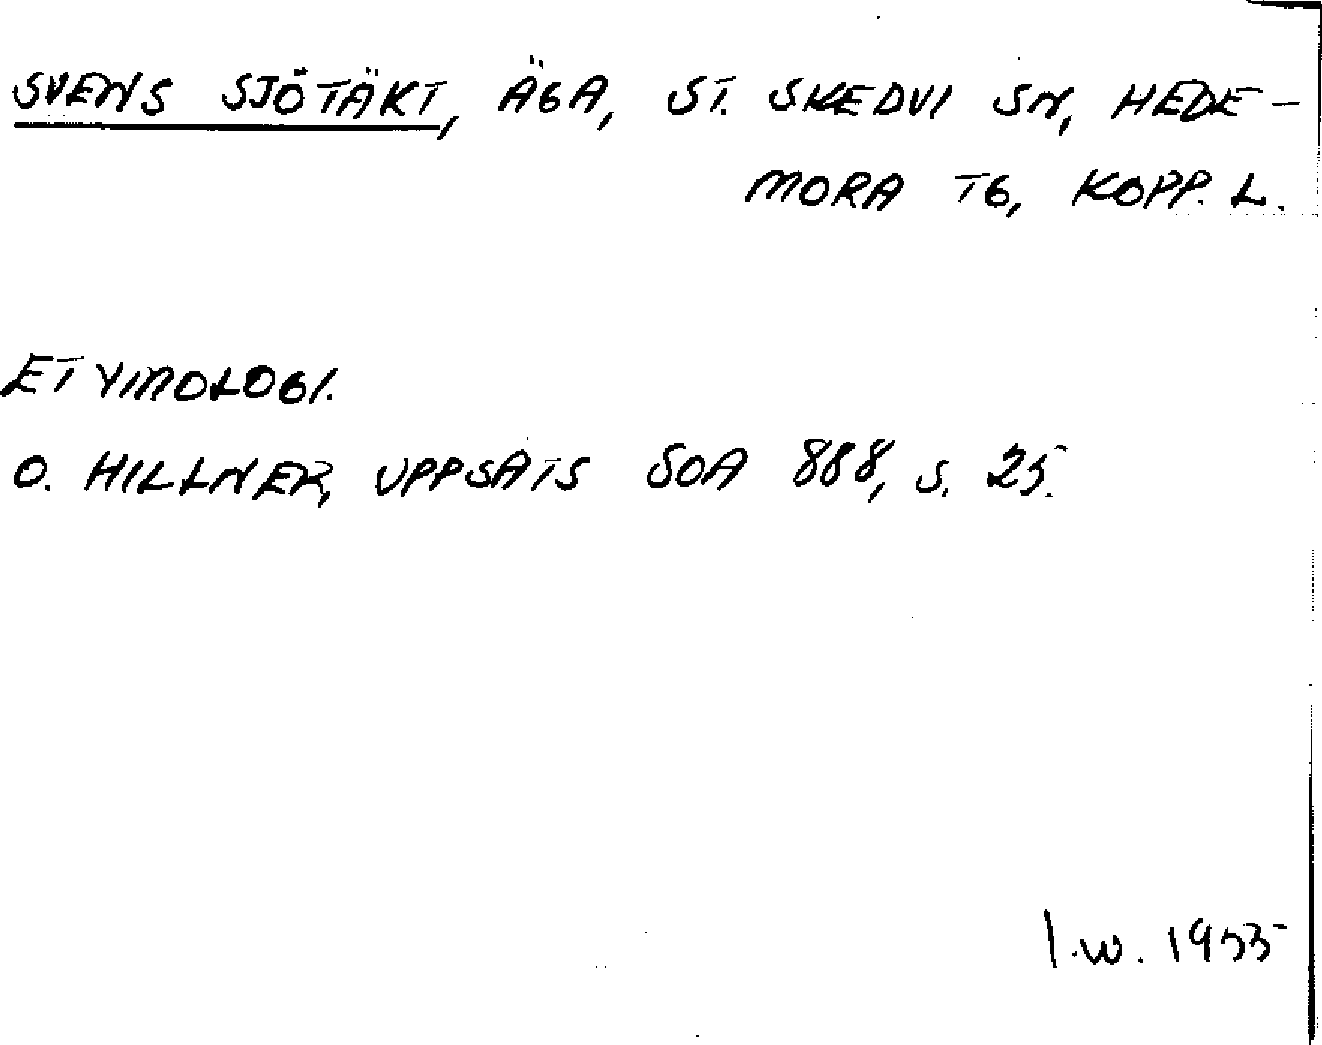 SVENS SJÖTÄKT, ÄGA, ST. SKEDVI SN, HEDE-
MORA TG, KOPP. L.
ETYMOLOGI.
O. HILLNER, UPPSATS SOA 888, S. 25.
I.W. 1955